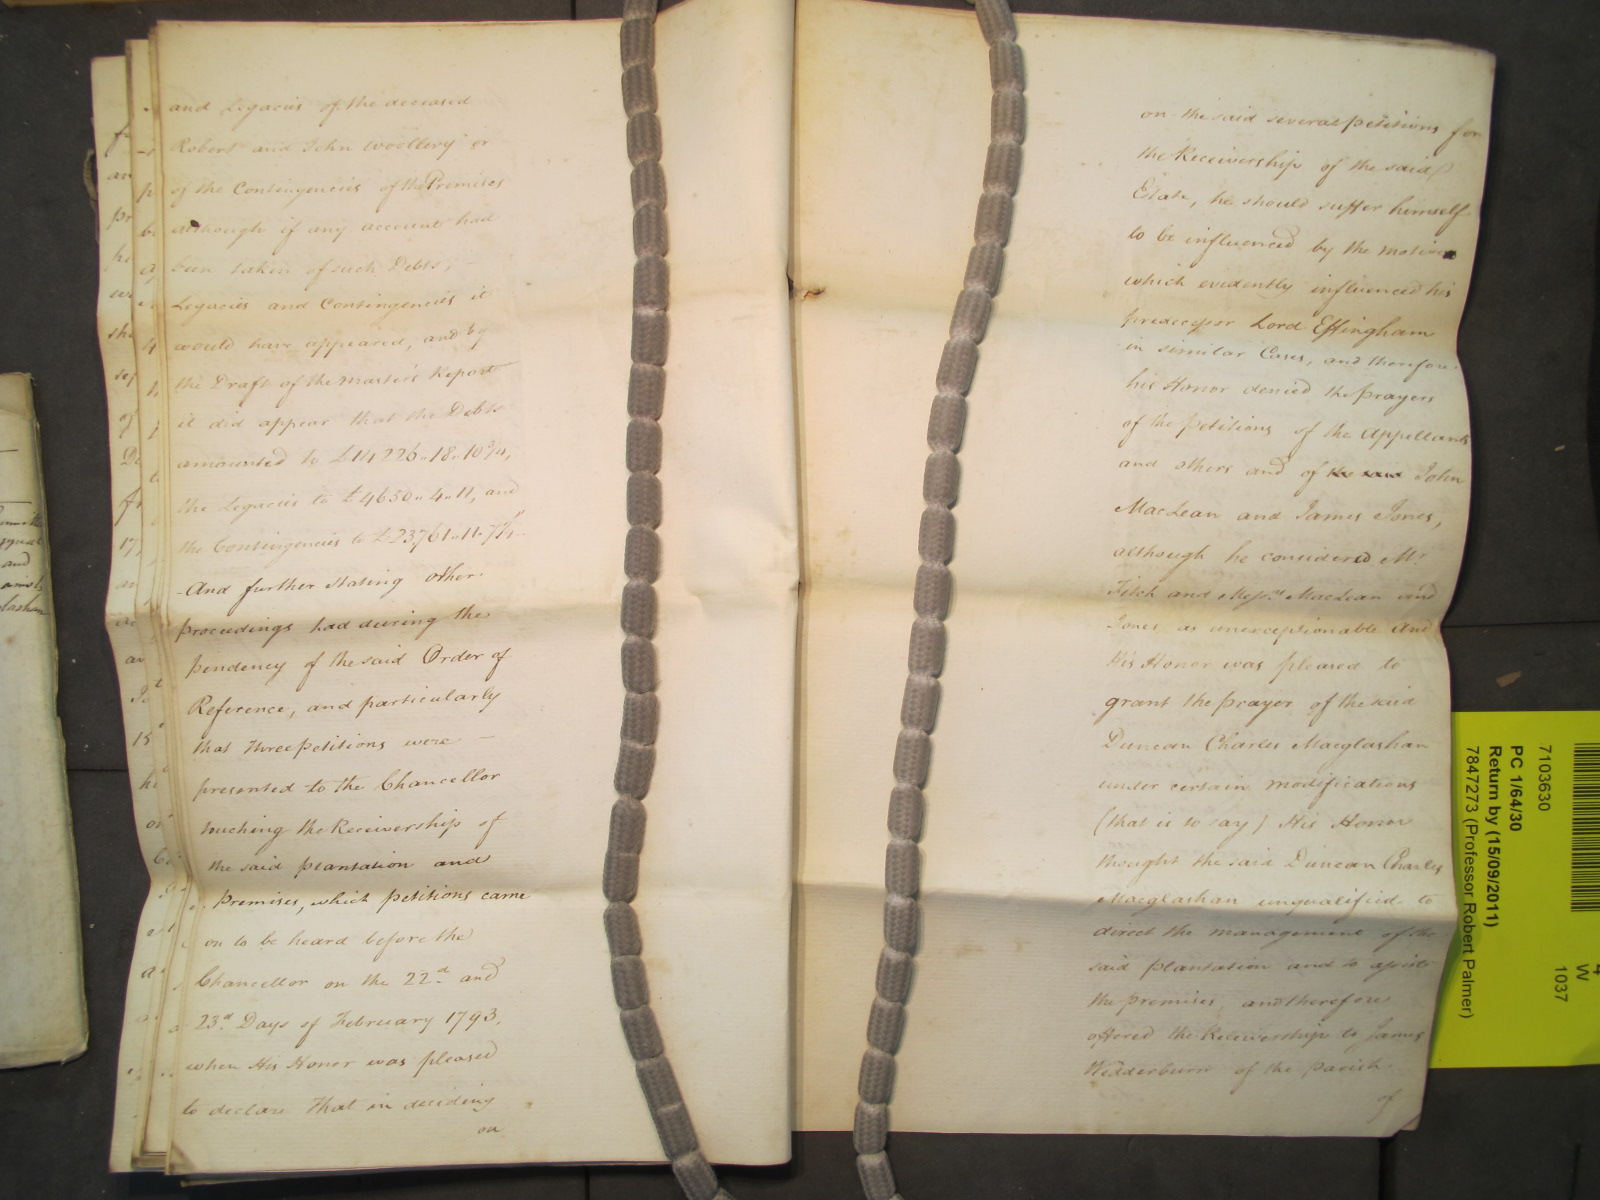 and Legacies of the deceased
Robert and John Woollery or
of the Contingencies of the Premises
although if any account had
been taken of such Debts,
Legacies and Contingencies it
would have appeared, and by
the Draft of the Master's Report
it did appear that the Debts
amounted to £14226..18..10¾,
the Legacies to £4650..4..11, and
the Contingencies to £23761..11..
And further stating other
proceedings had during the
pendency of the said Order of
Reference, and particularly
that three petitions were
presented to the Chancellor
touching the Receivership of
the said plantation and
Premises, which petitions came
on to be heard before the
Chancellor on the 22d. and
23d. Days of February 1793,
when His Honor was pleased
to declare that in deciding
on
on the said several petitions for
the Receivership of the said
Estate, he should suffer himself
to be influenced by the motives
which evidently influenced his
predecessor Lord Effingham
in similar Cases, and therefore
his Honor denied the prayers
of the petitions of the Appellants
and others and of the said John
MacLean and James Jones,
although he considered Mr.
Fitch and Messrs. MacLean and
Jones as unexceptionable And
His Honor was pleased to
grant the prayer of the said
Duncan Charles Macglashan
under certain modifications
(that is to say) His Honor
thought the said Duncan Charles
Macglashan unqualified to
direct the management of the
said plantation and to
the premises, and therefore
offered the Receivership to James
Wedderburn of the parish
of
7103630
PC 1/64/30
Return by (15/09/2011)
7847273 (Professor Robert Palmer)
W
1037